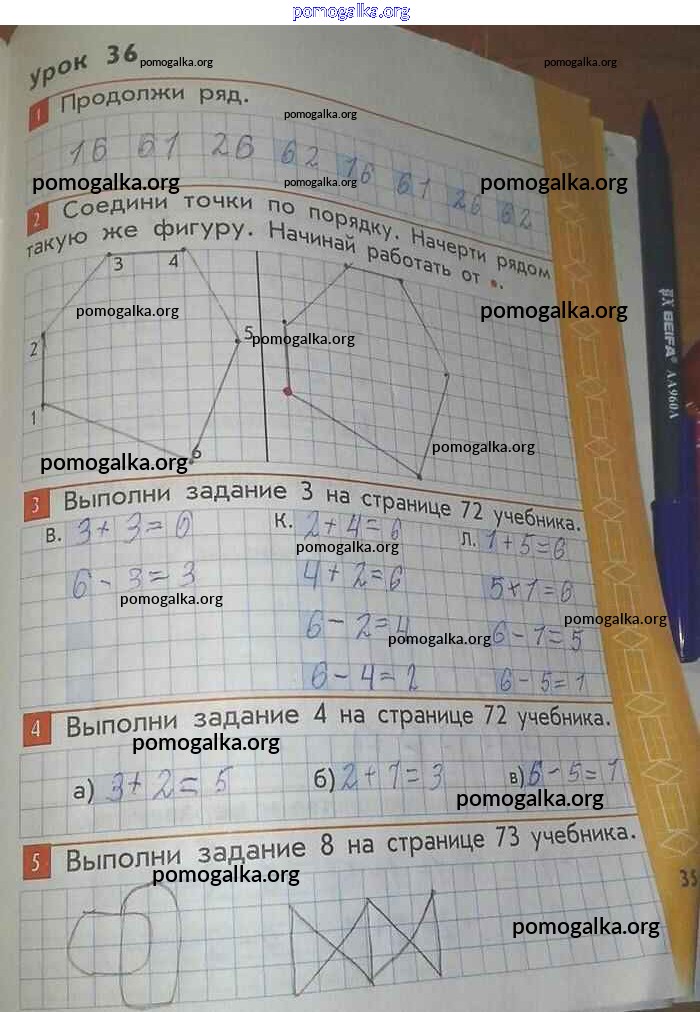 pomogalka.org
урок 36
pomogalka.org pomogalka.org
1 Продолжи ряд.
pomogalka.org
16 61 26 62 16 61 26 62
pomogalka.org pomogalka.org pomogalka.org
2 Соедини точки по порядку. Начерти рядом
такую же фигуру. Начинай работать от .
3 4
pomogalka.org pomogalka.org
2 5 pomogalka.org
1
6 pomogalka.org
pomogalka.org
3 Выполни задание 3 на странице 72 учебника.
В. 3+3=6 К. 2+4=6 Л. 1+5=6
pomogalka.org
6-3=3 4+2=6 5+1=6
pomogalka.org
6-2=4 6-1=5
pomogalka.org pomogalka.org
6-4=2 6-5=1
4 Выполни задание 4 на странице 72 учебника.
pomogalka.org
а) 3+2=5 б) 2+1=3 в) 6-5=1
pomogalka.org
5 Выполни задание 8 на странице 73 учебника.
pomogalka.org
35
pomogalka.org
BEIFA AA960A